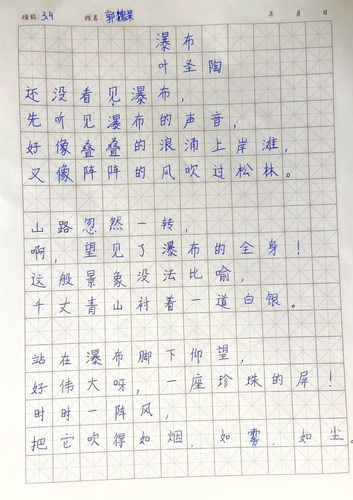 班级: 3.4 姓名: 郭 年 月 日
瀑布
叶圣陶
还没看见瀑布,
先听见瀑布的声音,
好像叠叠的浪涌上岸滩,
又像阵阵的风吹过松林。
山路忽然一转,
啊, 望见了瀑布的全身!
这般景象没法比喻,
千丈青山衬着一道白银。
站在瀑布脚下仰望,
好伟大呀, 一座珍珠的屏!
时时一阵风,
把它吹得如烟, 如雾, 如尘。